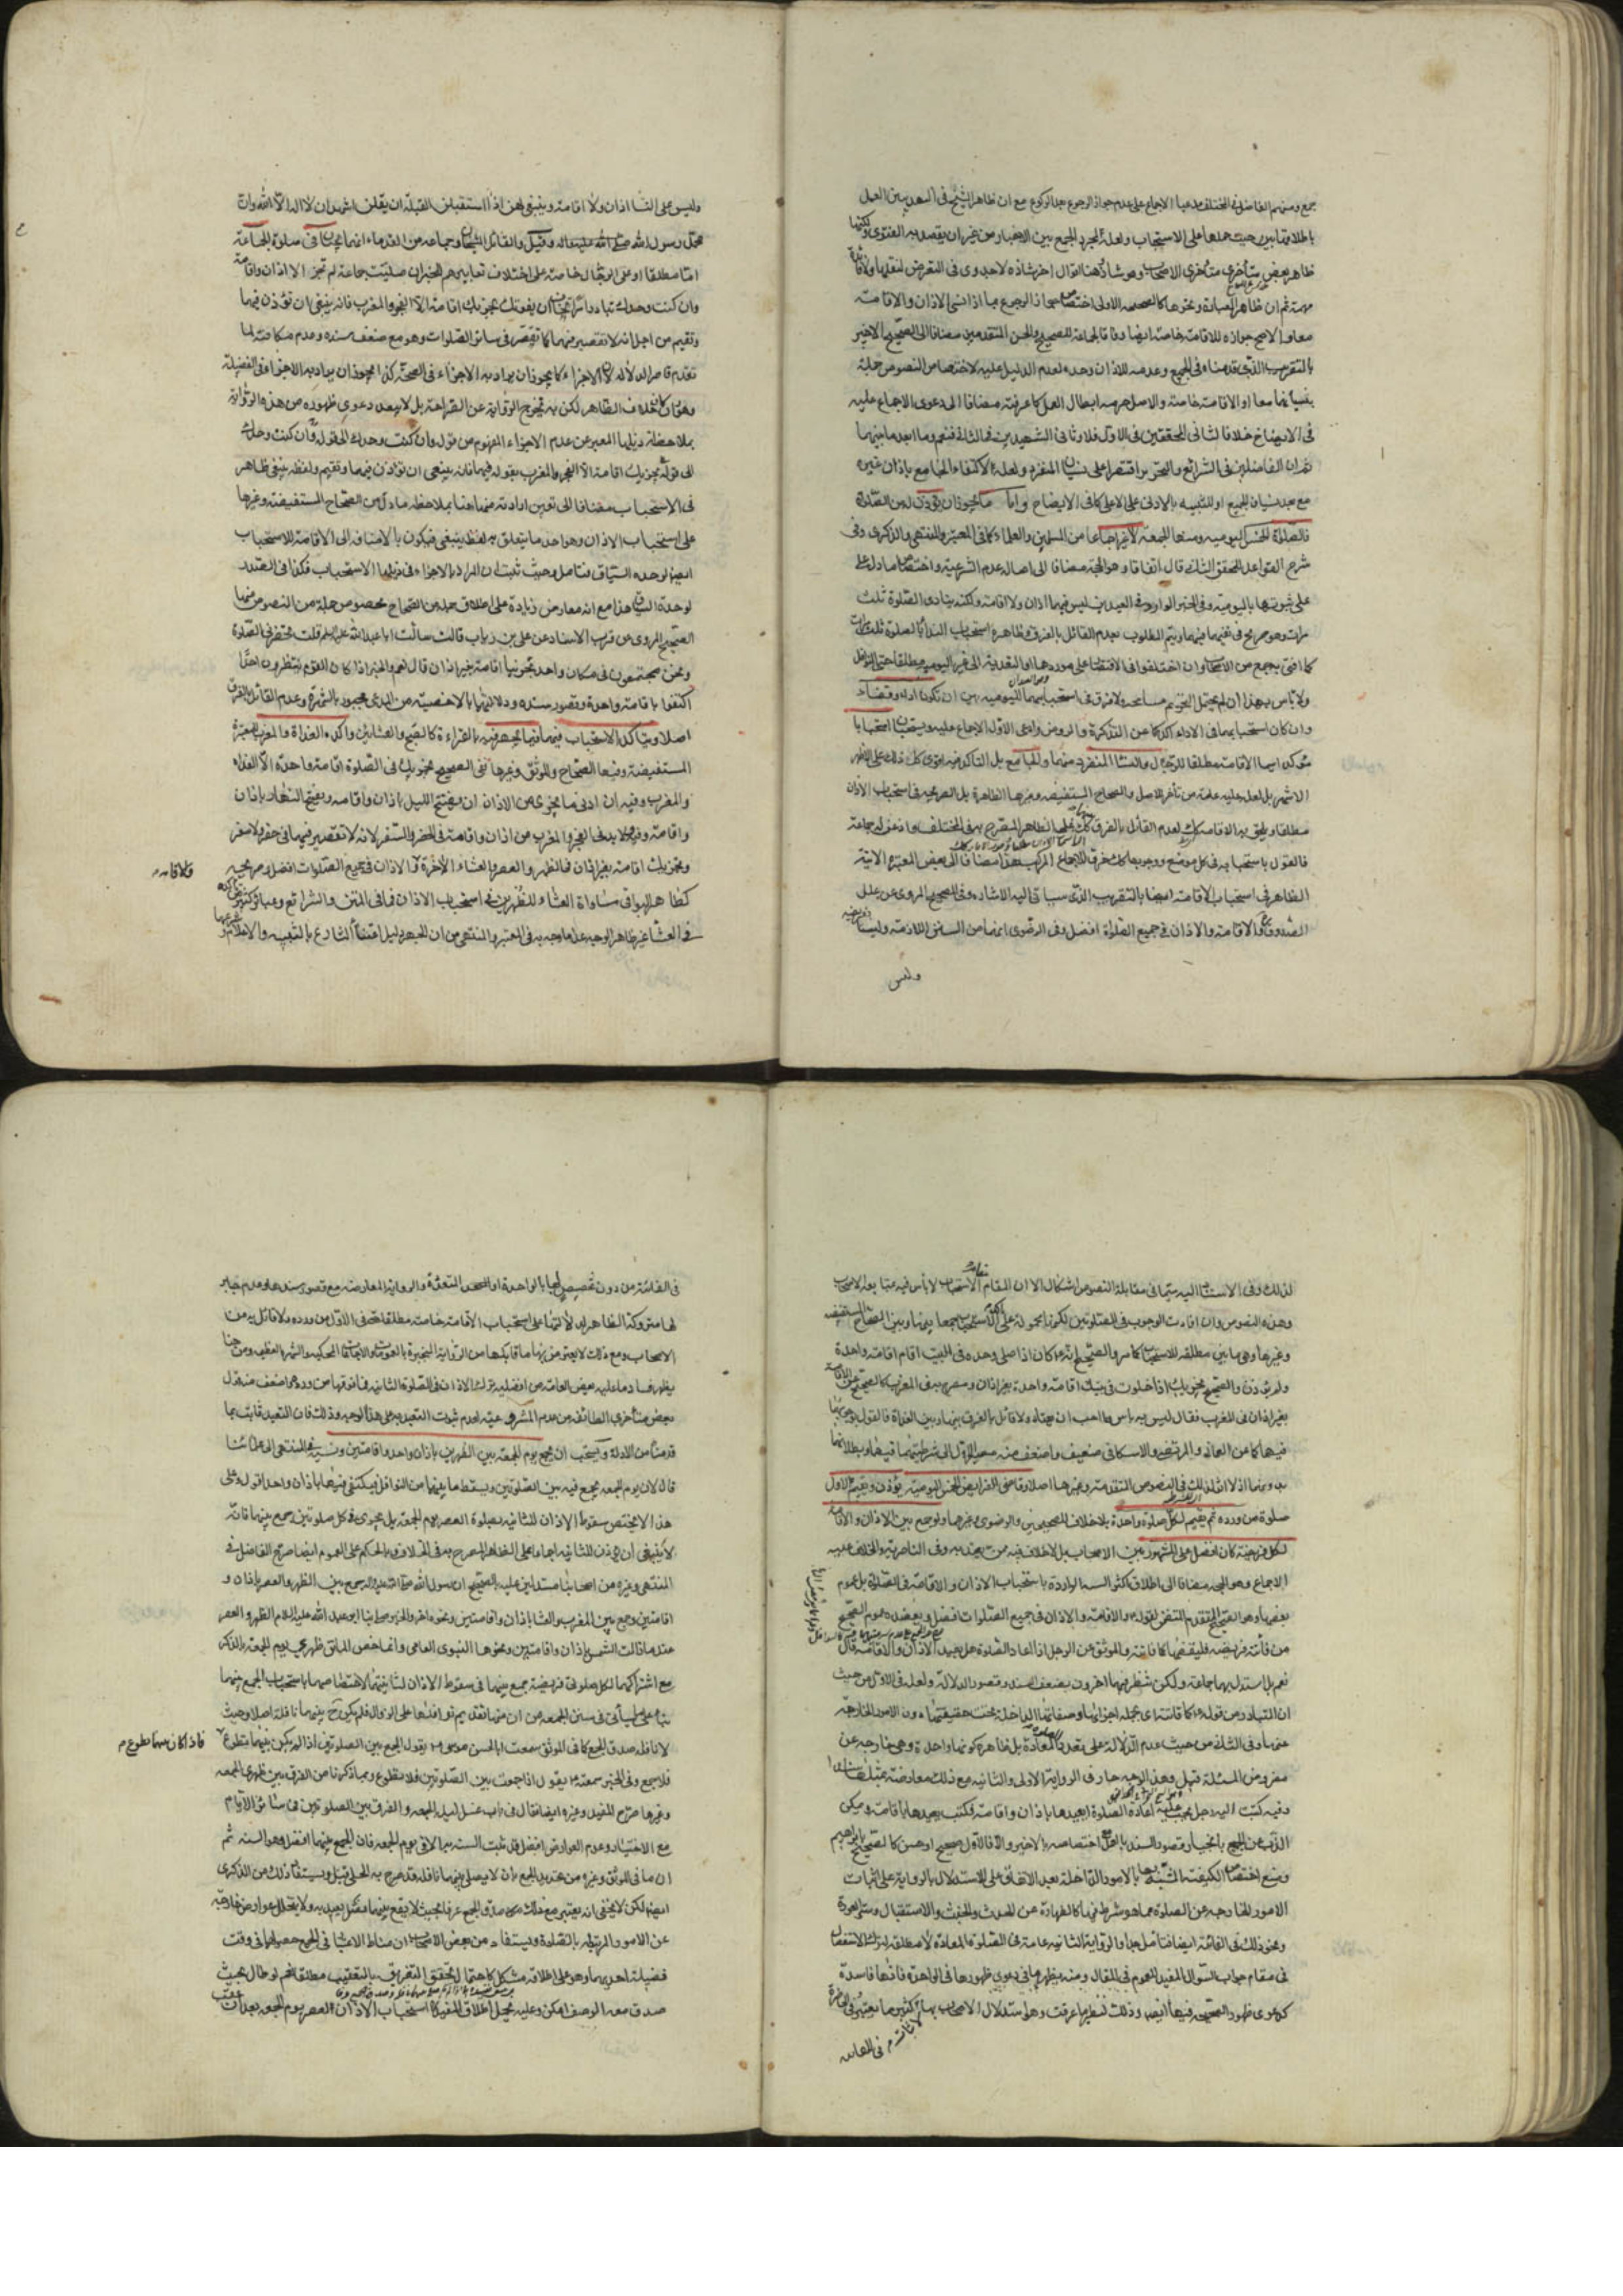 جمع ومنهم الفاضل في المختلف مدعيا الاجماع على عدم جواز الرجوع بعد الركوع مع ان ظاهر الشيخ في
باطلاقها بين حيث حملها على الاستحباب ولعله لمجرد الجمع بين الاخبار من غير ان يقصد به الفتوى
ظاهر بعض متأخري متأخري الاصحاب وهو شاذ وهنا اقوال اخر شاذة لا جدوى في التعرض لنقلها
ثم ان ظاهر العبارة ونحوها كالصحيحة الاولى اختصاص جواز الرجوع بما اذا نسي الاذان والاقامة
معا والاصح جوازه للاقامة خاصة ايضا وفاقا لجماعة للصحيح والحسن المتقدمين مضافا الى الصحيح الاخير
بالتقريب الذي قدمناه في الجميع وعدمه للاذان وحده لعدم الدليل عليه لاختصاص النصوص جملة
بنسيانهما معا او الاقامة خاصة والاصل حرمة ابطال العمل كما عرفته مضافا الى دعوى الاجماع عليه
في الايضاح خلافا لثاني المحققين في الاول فلا وثاني الشهيدين في الثاني فنعم وما ابعد ما بينهما
وبين الفاضلين في الشرائع والتحرير اقتصرا على نسيان المنفرد ولعله لاكتفاء الجامع باذان غيره
مع بعد نسيان الجميع او للتنبيه بالادنى على الاعلى كما في الايضاح واما ما يجوز ان يؤذن له من الصلاة
فالصلاة الخمس اليومية ومنها الجمعة لا غير اجماعا من المسلمين والعلماء كما في المعتبر والمنتهى والذكرى وفي
شرح القواعد للمحقق الثاني قال اتفاقا وهو الحجة مضافا الى اصالة عدم الشرعية واختصاص ما دل
على ثبوتها باليومية وفي الخبر الوارد في العيدين ليس فيهما اذان ولا اقامة ولكنه ينادي الصلوة ثلث
مرات وهو صريح في نفيهما فيهما ويتم المطلوب بعدم القائل بالفرق وظاهره استحباب النداء بالصلوة ثلث مرات
كما افتى به جمع من الاصحاب وان اختلفوا في الاقتصار على موردها او التعدية الى غير اليومية مطلقا حتى النوافل
ولا بأس بهذا ان لم يحتمل التحريم مسامحة ولا فرق في استحبابهما لليومية بين ان تكون اداء وقضاء
وان كان استحبابهما في الاداء آكد كما عن التذكرة والروض وادعى الاول الاجماع عليه ويستحبان استحبابا
مؤكدا سيما الاقامة مطلقا للرجال والنساء المنفرد منهما والجامع بل التأكد فيه اقوى كل ذلك على الاظهر
الاشهر بل لعل عليه عامة من تأخر للاصل والصحاح المستفيضة وغيرها الظاهرة بل الصريحة في استحباب الاذان
مطلقا ويلحق به الاقامة لعدم القائل بالفرق على الظاهر المصرح به في المختلف
فالقول باستحبابه في كل موضع ووجوبها كذلك خرق للاجماع المركب هذا مضافا الى بعض المعتبرة الاتية
الظاهر في استحباب الاقامة ايضا بالتقريب الذي سياتي اليه الاشارة وفي الصحيح المروي عن علل
الصدوق والاقامة والاذان في جميع الصلوة افضل وفي الرضوي انهما من السنن اللازمة وليستا بفريضة
وليس
وليس على النساء اذان ولا اقامة وينبغي لهن اذا استقبلن القبلة ان يقلن اشهد ان لا اله الا الله وان
محمدا رسول الله صلى الله عليه واله وقيل والقائل الشيخان وجماعة من القدماء انهما يجبان في صلوة الجماعة
اما مطلقا او على الرجال خاصة على اختلاف تعابيرهم للخبر ان صليت جماعة لم تجز الا اذان واقامة
وان كنت وحدك تبادر امرا تخاف ان يفوتك تجزيك اقامة الا الفجر والمغرب فانه ينبغي ان تؤذن فيهما
وتقيم من اجل انه لا تقصير فيهما كما تقصر في سائر الصلوات وهو مع ضعف سنده وعدم مكافئته لما
تقدم قاصر الدلالة لان الاجزاء كما يجوز ان يراد به الاجزاء في الصحة كذا يجوز ان يراد به الاجزاء في الفضيلة
وهو وان كان خلاف الظاهر لكن به تخرج الرواية عن الصراحة بل لا يبعد دعوى ظهوره من هذه الرواية
بملاحظة ذيلها المعبر عن عدم الاجزاء المفهوم من قوله وان كنت وحدك الى قوله وان كنت وحدك
الى قوله تجزيك اقامة الا الفجر والمغرب بقوله فيهما فانه ينبغي ان تؤذن فيهما وتقيم ولفظة ينبغي ظاهر
في الاستحباب مضافا الى تعين ارادته منها هنا بملاحظة ما دل من الصحاح المستفيضة وغيرها
على استحباب الاذان وهو احد ما يتعلق به لفظ ينبغي فيكون بالاضافة الى الاقامة للاستحباب
ايضا لوحدة السياق فتامل وحيث ثبت ان المراد بالاجزاء في ذيلها الاستحباب فكذا في الصدر
لوحدة السياق هذا مع انه معارض زيادة على اطلاق جملة من الصحاح بخصوص جملة من النصوص منها
الصحيح المروي عن قرب الاسناد عن علي بن رئاب قالت سالت ابا عبد الله عليه السلم قلت تحضرني الصلوة
ونحن مجتمعون في مكان واحد تجزينا اقامة بغير اذان قال نعم والخبر اذا كان القوم لا ينتظرون احدا
اكتفوا باقامة واحدة وقصور سنده ودلالتهما بالاخصية من المدعى مجبور بالشهرة وعدم القائل بالفرق
اصلا ويتأكد الاستحباب فيهما فيما يجهر فيه بالقراءة كالصبح والعشائين وآكده الغداة والمغرب للمعتبرة
المستفيضة وفيها الصحاح والموثق وغيرها ففي الصحيح تجزيك في الصلوة اقامة واحدة الا الغداة
والمغرب وفيه ان ادنى ما يجزي من الاذان ان يفتتح الليل باذان واقامة ويفتتح النهار باذان
واقامة وفيه لا بد في الفجر والمغرب من اذان واقامة في الحضر والسفر لانه لا تقصير فيهما في حضر ولا سفر
وتجزيك اقامة بغير اذان في الظهر والعصر والعشاء الآخرة والاذان في جميع الصلوات افضل وصريحه
كظاهر البواقي مساواة العشاء للظهرين في استحباب الاذان
في العشاء غير ظاهر الوجه عدا ما وجه به في المعتبر والمنتهى من ان الجهر دليل اعتناء الشارع بالتنبيه والاعلام
لذلك وفي الاستناد اليه سيما في مقابلة النصوص اشكال الا ان المقام مقام الاستحباب لا بأس فيه بمتابعة الاصحاب
وهذه النصوص وان افادت الوجوب في الصلوتين لكونها محمولة على تأكد الاستحباب جمعا بينها وبين الصحاح المستفيضة
وغيرها وهي ما بين مطلقة للاستحباب كما مر والصحيح انه كان اذا صلى وحده في البيت اقام اقامة واحدة
ولم يؤذن والصحيح يجزيك اذا خلوت في بيتك اقامة واحدة بغير اذان ومصرح به في المغرب كالصحيح عن الاقامة
بغير اذان في المغرب فقال ليس به باس وما احب ان يعتاد ولا قائل بالفرق بينها وبين الغداة فالقول بوجوبهما
فيهما كما عن العماني والمرتضى والاسكافي ضعيف واضعف منه مصير الاول الى شرطيتهما فيهما وبطلانهما
بدونهما اذ لا اثر لذلك في النصوص المتقدمة وغيرها اصلا وقاضي الفرائض الخمس اليومية يؤذن ويقيم لاول
صلوة من ورده ثم يقيم لكل صلوة واحدة بلا خلاف للصحيحين والرضوي وغيرها ولو جمع بين الاذان والاقامة
لكل فريضة كان افضل على المشهور بين الاصحاب بل لا خلاف فيه ممن يعتد به وفي الناصرية والخلاف عليه
الاجماع وهو الحجة مضافا الى اطلاق اكثر السنة الواردة باستحباب الاذان والاقامة في الصلوة بل عموم
بعضها وهو الصحيح المتقدم المتضمن لقوله والاقامة والاذان في جميع الصلوات افضل ويعضده عموم الصحيح
من فاتته فريضة فليقضها كما فاتته والموثق عن الرجل اذا اعاد الصلوة هل يعيد الاذان والاقامة قال
نعم بل استدل بهما جماعة ولكن تنظر فيهما اخرون بضعف السند وقصور الدلالة ولعله في الاول من حيث
ان المتبادر من قوله كما فاتته اي بجملة اجزائها وصفاتها الداخلة تحت حقيقتها دون الامور الخارجة
عنها وفي الثاني من حيث عدم الدلالة على تعدد الصلوة المعادة بل ظاهره كونها واحدة وهي خارجة عن
مفروض المسئلة قيل وهذا الوجه جار في الرواية الاولى والثانية مع ذلك معارضة بمثلها
وفيه كتبت اليه رجل يجب عليه اعادة الصلوة ايعيدها باذان واقامة فكتب يعيدها باقامة ويمكن
الذب عن الجميع بانجبار قصور السند بالعمل مع اختصاصه بالاخير والا فالاول صحيح او حسن كالصحيح بابراهيم
ومنع اختصاص الكيفية المشبهة بها بالامور الداخلة بعد الاتفاق على الاستدلال بالرواية على اثبات
الامور الخارجة عن الصلوة مما هو شرط فيها كالطهارة عن الحدث والخبث والاستقبال وستر العورة
ونحو ذلك في الفائتة ايضا فتامل جدا والرواية الثانية عامة في الصلوة المعادة لا مطلقة لترك الاستفصال
في مقام جواب السؤال المفيد للعموم في المقال ومنه يظهر ما في دعوى ظهورها في الواحدة فانها فاسدة
كدعوى ظهور الصحيحة فيها ايضا وذلك لنظير ما عرفت وهو استدلال الاصحاب بها لكثير مما يعتبر في الحاضرة
في الفائتة
في الفائتة من دون تخصيص لها بالواحدة او المتعددة والرواية المعارضة مع قصور سندها وعدم جابر
لها متروكة الظاهر لدلالتها على استحباب الاقامة خاصة مطلقا حتى في الاول من ورده ولا قائل به من
الاصحاب ومع ذلك لا يعترض بها ما قابلها من الرواية المنجبرة بالعمومات والاجماعات المحكية والشهرة العظيمة ومن هنا
يظهر فساد ما عليه بعض العامة من افضلية ترك الاذان في الصلوة الثانية فما فوقها من ورده واضعف منه قول
بعض متأخري الطائفة من عدم المشروعية لعدم ثبوت التعبد به على هذا الوجه وذلك فان التعبد ثابت بما
قدمناه من الادلة ويستحب ان يجمع يوم الجمعة بين الظهرين باذان واحد واقامتين ونسبه في المنتهى الى علمائنا
قال لان يوم الجمعة يجمع فيه بين الصلوتين ويسقط ما بينهما من النوافل فيكتفي فيها باذان واحد اقول وعلى
هذا لا يختص سقوط الاذان للثانية بصلوة العصر يوم الجمعة بل يجري في كل صلوتين جمع بينهما فانه
لا ينبغي ان يؤذن للثانية اجماعا على الظاهر المصرح به في الخلاف وبالحكم على العموم ايضا صرح الفاضل في
المنتهى وغيره من اصحابنا مستدلين عليه بالصحيح ان رسول الله صلى الله عليه واله جمع بين الظهر والعصر باذان و
اقامتين وجمع بين المغرب والعشاء باذان واقامتين ونحوه اخر والخبر صلى بنا ابو عبد الله عليه السلام الظهر والعصر
عند ما زالت الشمس باذان واقامتين ونحوها النبوي العامي وانما خص الماتن ظهري يوم الجمعة بالذكر
مع اشتراكهما لكل صلوتي فريضة جمع بينهما في سقوط الاذان لثانيتهما لاختصاصهما باستحباب الجمع بينهما
بناء على ما ياتي في سنن الجمعة من ان منها تقديم نوافلها على الزوال فلم يكن ح بينهما نافلة اصلا وحيث
لا نافلة صدق الجمع كما في الموثق سمعت ابا الحسن موسى ع يقول الجمع بين الصلوتين اذا لم يكن بينهما تطوع
فاذا كان بينهما تطوع
فلا جمع وفي الخبر سمعته يقول اذا جمعت بين الصلوتين فلا تطوع وبما ذكرنا من الفرق بين ظهري الجمعة
وغيرها صرح المفيد وغيره ايضا فقال في باب غسل ليلة الجمعة والفرق بين الصلوتين في سائر الايام
مع الاختيار وعدم العوارض افضل قد ثبتت السنة به الا في يوم الجمعة فان الجمع بينهما افضل وهو السنة ثم
ان ما في الموثق وغيره من تحديد الجمع بان لا يصلي بينهما نافلة قد صرح به الحلي قيل ويستفاد ذلك من الذكرى
ايضا لكن لا يخفى انه يعتبر مع ذلك صدق الجمع عرفا بحيث لا يقع بينهما فصل يعتد به ولا يتخلل عوارض خارجة
عن الامور المرتبطة بالصلوة ويستفاد من بعض الاصحاب ان مناط الاعتبار في الجمع حصولهما في وقت
فضيلة احديهما وهو على اطلاقه مشكل كاحتمال تحقق التفريق بالتعقيب مطلقا نعم لو طال بحيث
صدق معه الوصف امكن وعليه يحمل اطلاق المفيد استحباب الاذان لعصر يوم الجمعة بعد ان عقب